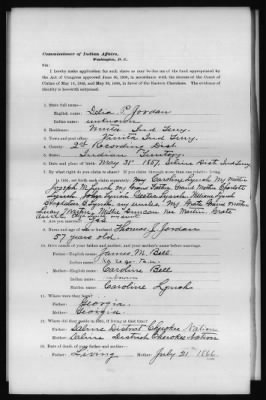 Commissioner of Indian Affairs,
Washington, D. C.
Sir:
I hereby make application for such share as may be due me of the fund appropriated by
the Act of Congress approved June 30, 1906, in accordance with the decrees of the Court of
Claims of May 18, 1905, and May 28, 1906, in favor of the Eastern Cherokees. The evidence of
identity is herewith subjoined.
1. State full name—
English name: Delia P. Jordan
Indian name: unknown
2. Residence: Vinita Ind Terry.
3. Town and post office: Vinita Ind Terry.
4. County: 2nd Recording Dist
5. State: Indian Territory
6. Date and place of birth: May 31st 1857 Saline Dist Ind Terry
7. By what right do you claim to share? If you claim through more than one relative living
in 1851, set forth each claim separately: My Caroline Lynch My Mother
Joseph M. Lynch My Grand Father
John Lynch
Lynch my uncles
Martin Duncan nee Martin
8. Are you married? Yes
9. Name and age of wife or husband: Thomas J. Jordan
57 years old.
10. Give names of your father and mother, and your mother's name before marriage.
Father—English name: James M. Bell
Indian name:
Mother—English name: Caroline Bell
Indian name: unknown
Maiden name: Caroline Lynch
11. Where were they born?
Father: Georgia.
Mother: Georgia.
12. Where did they reside in 1851, if living at that time?
Father: Saline District Cherokee Nation
Mother: Saline district Cherokee Nation
13. Date of death of your father and mother—
Father: Living Mother: July 21st 1866.